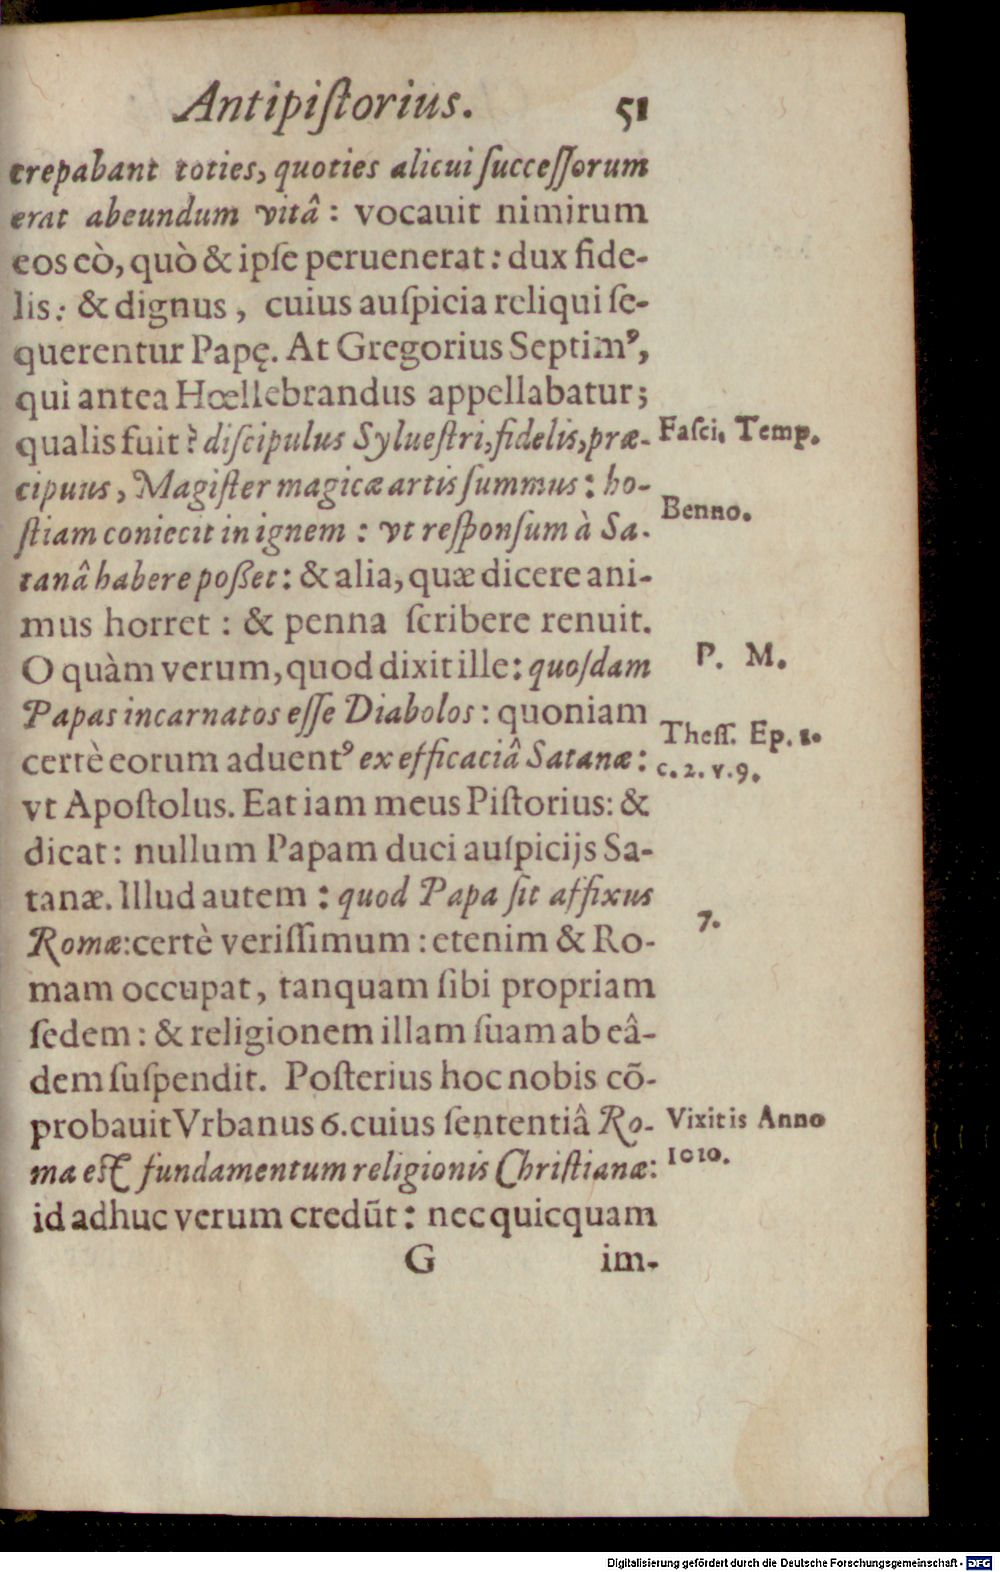 Antipiſtorius. 51
crepabant toties, quoties alicui ſucceſſorum
erat abeundum vitâ: vocauit nimirum
eos eò, quò & ipſe peruenerat: dux fide-
lis: & dignus, cuius auſpicia reliqui ſe-
querentur Papę. At Gregorius Septimꝰ,
qui antea Hœllebrandus appellabatur;
qualis fuit? diſcipulus Sylueſtri, fidelis, præ-
Faſci. Temp.
cipuus, Magiſter magicæ artis ſummus: ho-
Benno.
ſtiam coniecit in ignem: vt reſponſum à Sa-
tanâ habere poßet: & alia, quæ dicere ani-
mus horret: & penna ſcribere renuit.
O quàm verum, quod dixit ille: quoſdam
P. M.
Papas incarnatos eſſe Diabolos: quoniam
certè eorum aduentꝰ ex efficaciâ Satanæ:
Theſſ. Ep. 2.
c. 2. v. 9.
vt Apoſtolus. Eat iam meus Piſtorius: &
dicat: nullum Papam duci auſpicijs Sa-
tanæ. Illud autem: quod Papa ſit affixus
7.
Romæ: certè veriſſimum: etenim & Ro-
mam occupat, tanquam ſibi propriam
ſedem: & religionem illam ſuam ab eâ-
dem ſuſpendit. Poſterius hoc nobis cõ-
probauit Vrbanus 6. cuius ſententiâ Ro-
Vixit is Anno
1010.
ma eſt fundamentum religionis Chriſtianæ:
id adhuc verum credũt: nec quicquam
G im-
Digitalisierung gefördert durch die Deutsche Forschungsgemeinschaft - DFG